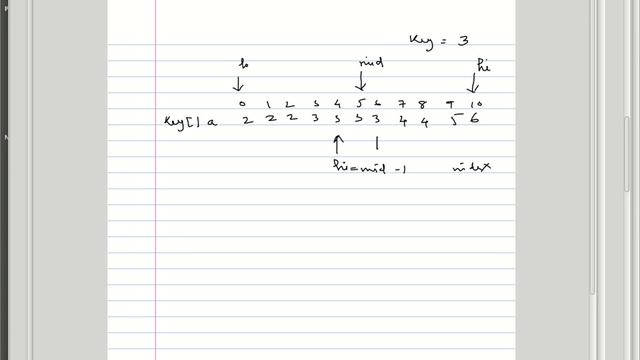 Key = 3
lo mid hi
0 1 2 3 4 5 6 7 8 9 10
Key[] a 2 2 2 3 3 3 3 4 4 5 6
hi = mid - 1 index